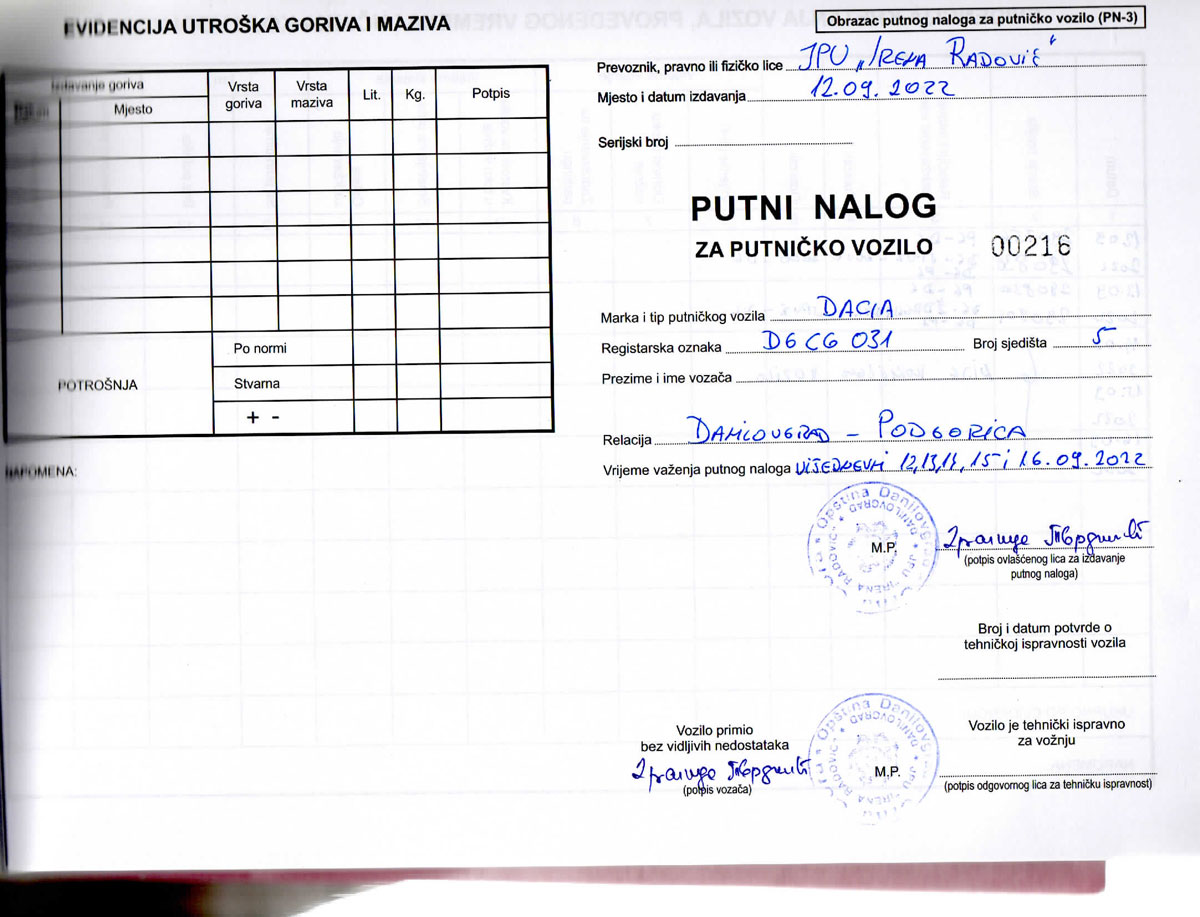 EVIDENCIJA UTROŠKA GORIVA I MAZIVA
Izdavanje goriva
Mjesto
Vrsta goriva
Vrsta maziva
Lit.
Kg.
Potpis
POTROŠNJA
Po normi
Stvarna
+ -
NAPOMENA:
Obrazac putnog naloga za putničko vozilo (PN-3)
Prevoznik, pravno ili fizičko lice JPU „IRENA RADOVIĆ“
Mjesto i datum izdavanja 12.09.2022
Serijski broj
PUTNI NALOG
ZA PUTNIČKO VOZILO 00216
Marka i tip putničkog vozila DACIA
Registarska oznaka DG CG 031 Broj sjedišta 5
Prezime i ime vozača
Relacija DANILOVGRAD - PODGORICA
Vrijeme važenja putnog naloga VIŠEDNEVNI 12,13,14, 15 i 16.09.2022
M.P.
(potpis ovlašćenog lica za izdavanje
putnog naloga)
Broj i datum potvrde o
tehničkoj ispravnosti vozila
Vozilo primio
bez vidljivih nedostataka
(potpis vozača)
M.P.
Vozilo je tehnički ispravno
za vožnju
(potpis odgovornog lica za tehničku ispravnost)